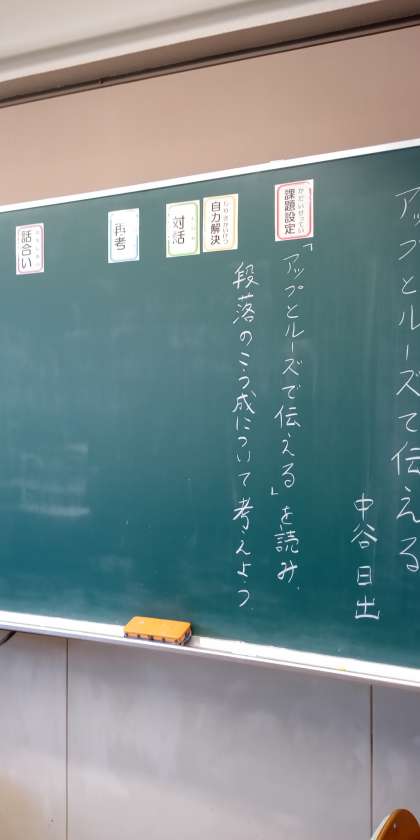 アップとルーズで伝える
中谷日出
かだいせってい
課題設定
「アップとルーズで伝える」を読み、
段落のこう成について考えよう。
じりきかいけつ
自力解決
対話
再考
話合い